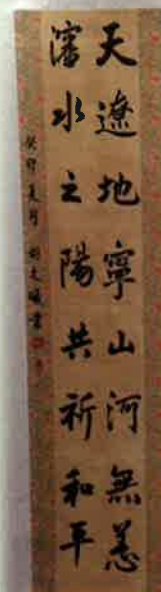 天遼地寧山河無恙
瀋水之陽共祈和平
癸卯夏月